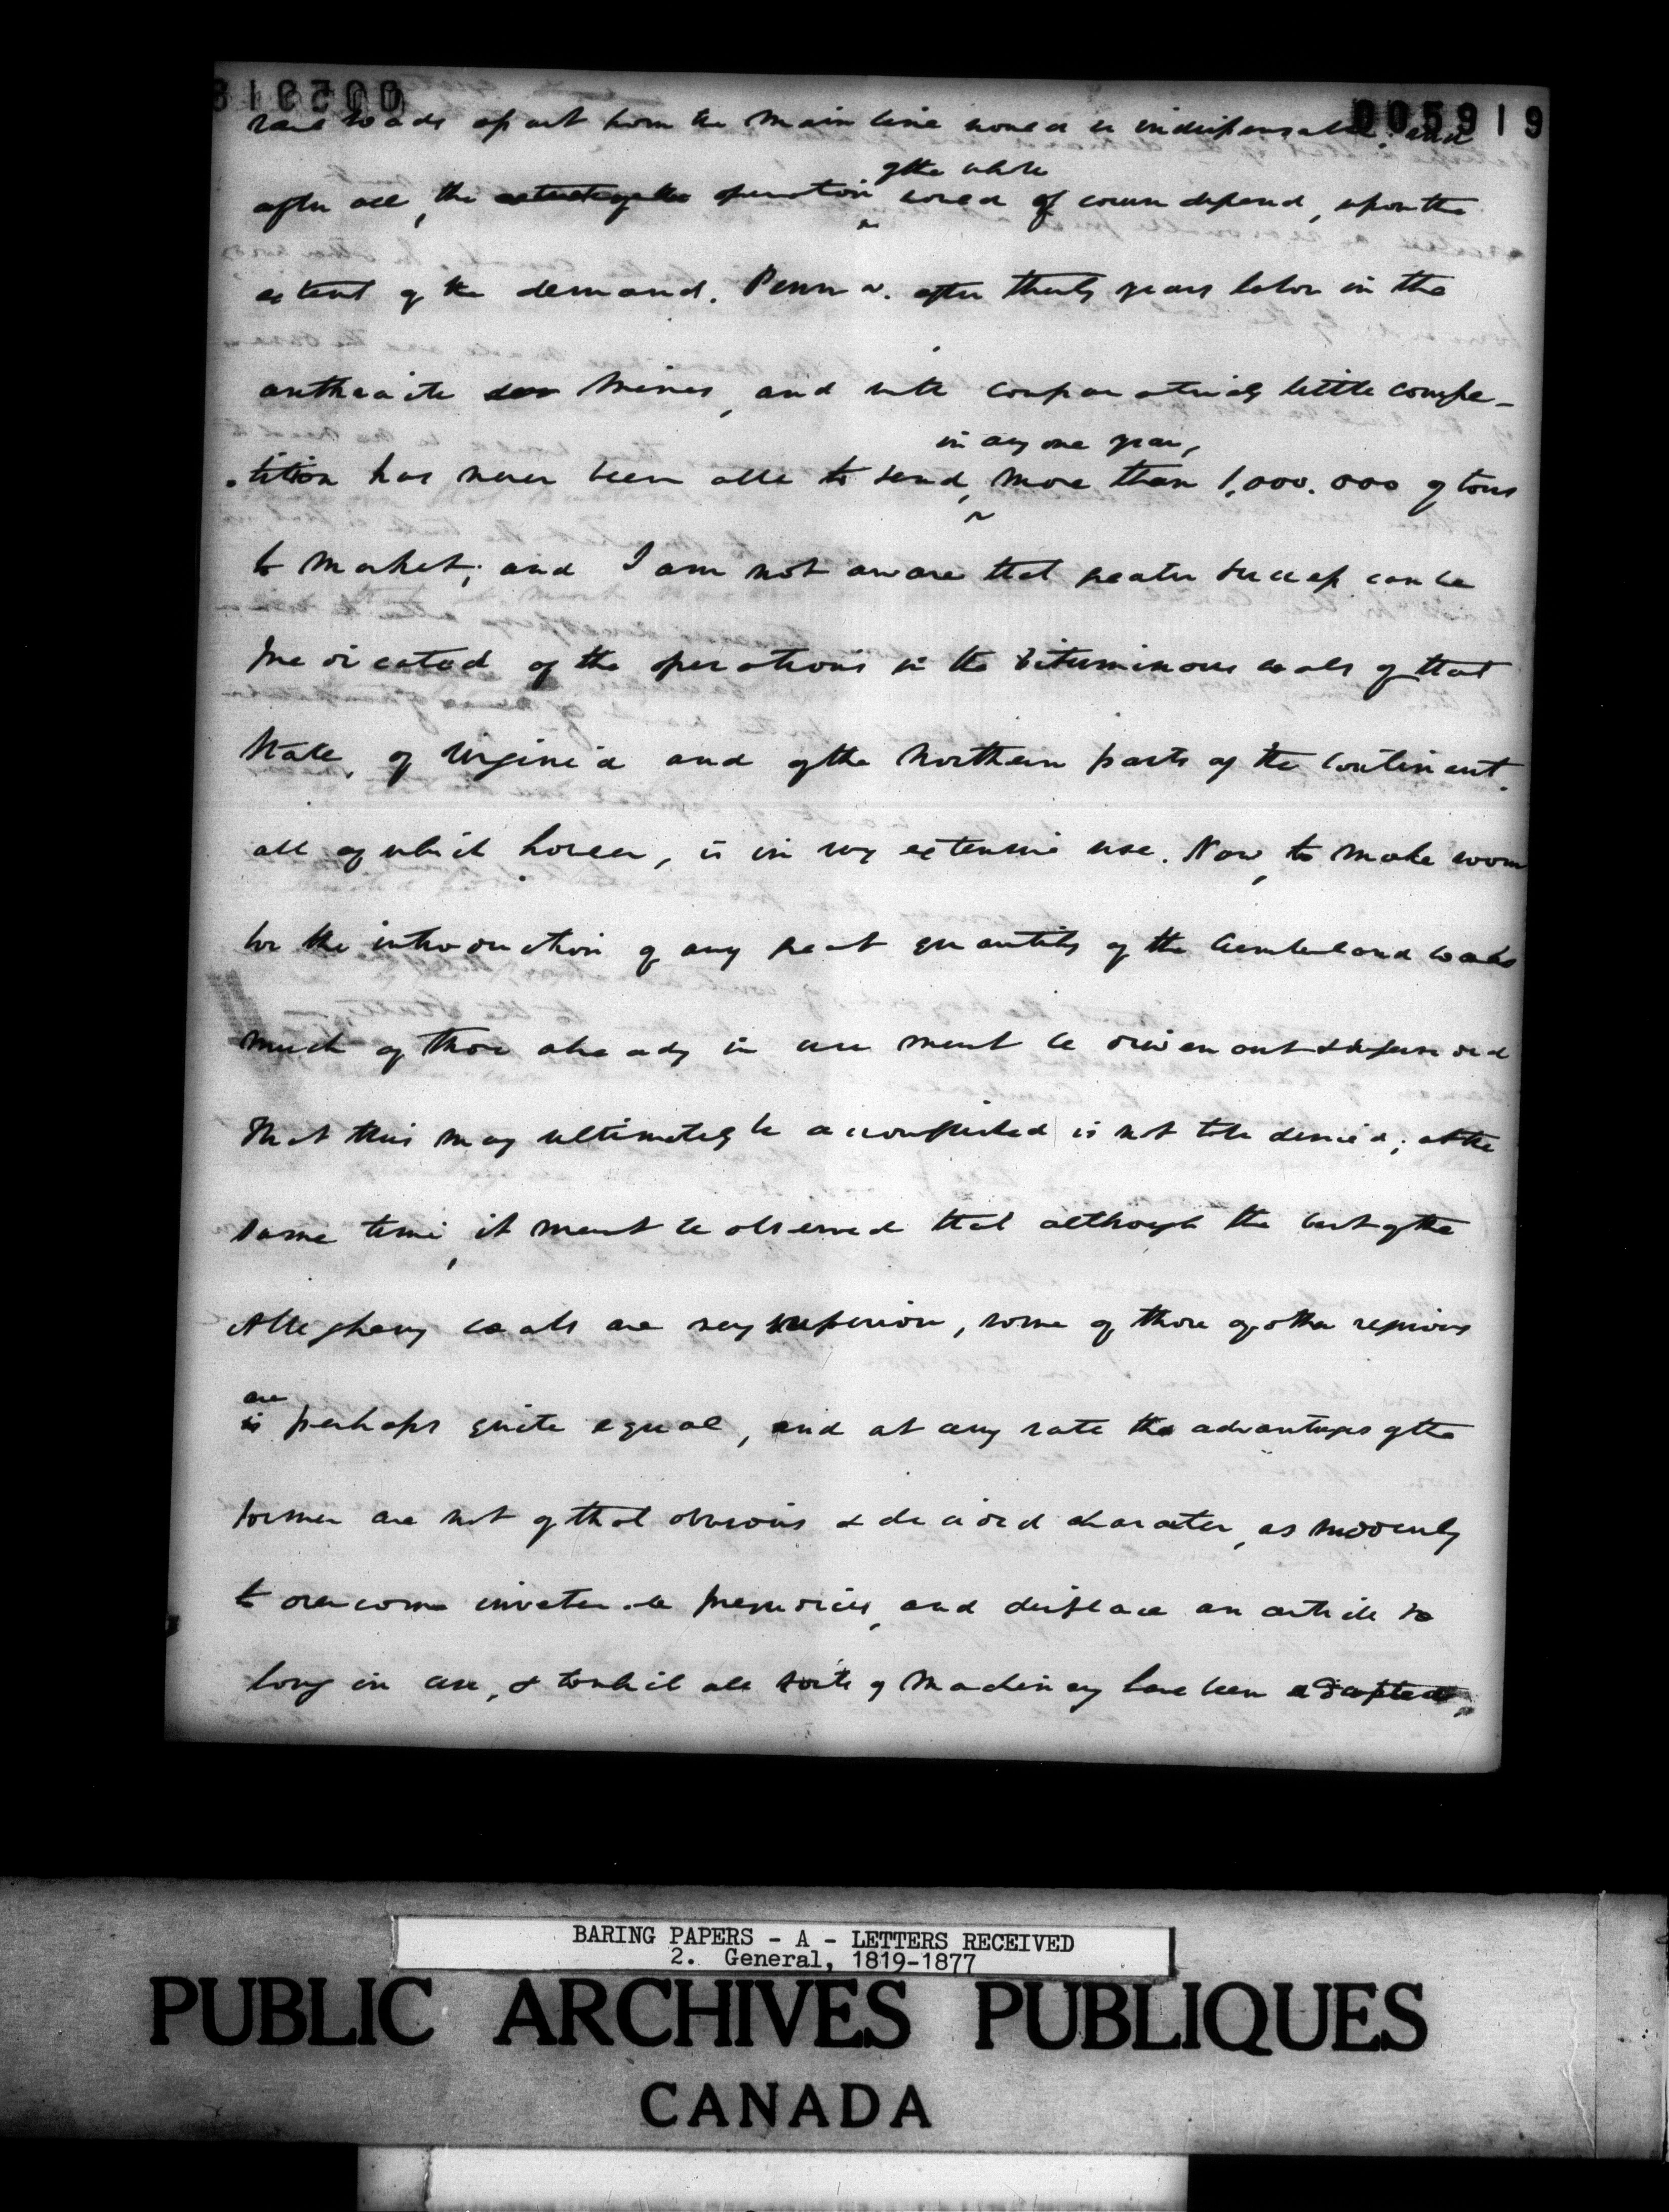 005919
rail roads apart from the main line would be indispensable; and
of the whole
after all, the operation would of course depend, upon the
extent of the demand. Penna. after thirty years labor in the
anthracite mines, and with comparatively little compe-
in any one year,
tition has never been able to send, more than 1,000.000 of tons
to market; and I am not aware that greater success can be
predicated of the operations in the bituminous coals of that
State, of Virginia and of the northern parts of the continent.
all of which however, is in very extensive use. Now, to make room
for the introduction of any great quantity of the Cumberland coals
much of those already in use must be driven out & superseded
That this may ultimately be accomplished is not to be denied; at the
same time, it must be observed that although the best of the
Alleghany coals are very superior, some of those of other regions
are
is perhaps quite equal, and at any rate the advantages of the
former are not of that obvious & decided character, as suddenly
to overcome inveterate prejudices, and displace an article so
long in use, & to which all sorts of machinery have been adapted,
BARING PAPERS - A - LETTERS RECEIVED
2. General, 1819-1877
PUBLIC ARCHIVES PUBLIQUES
CANADA